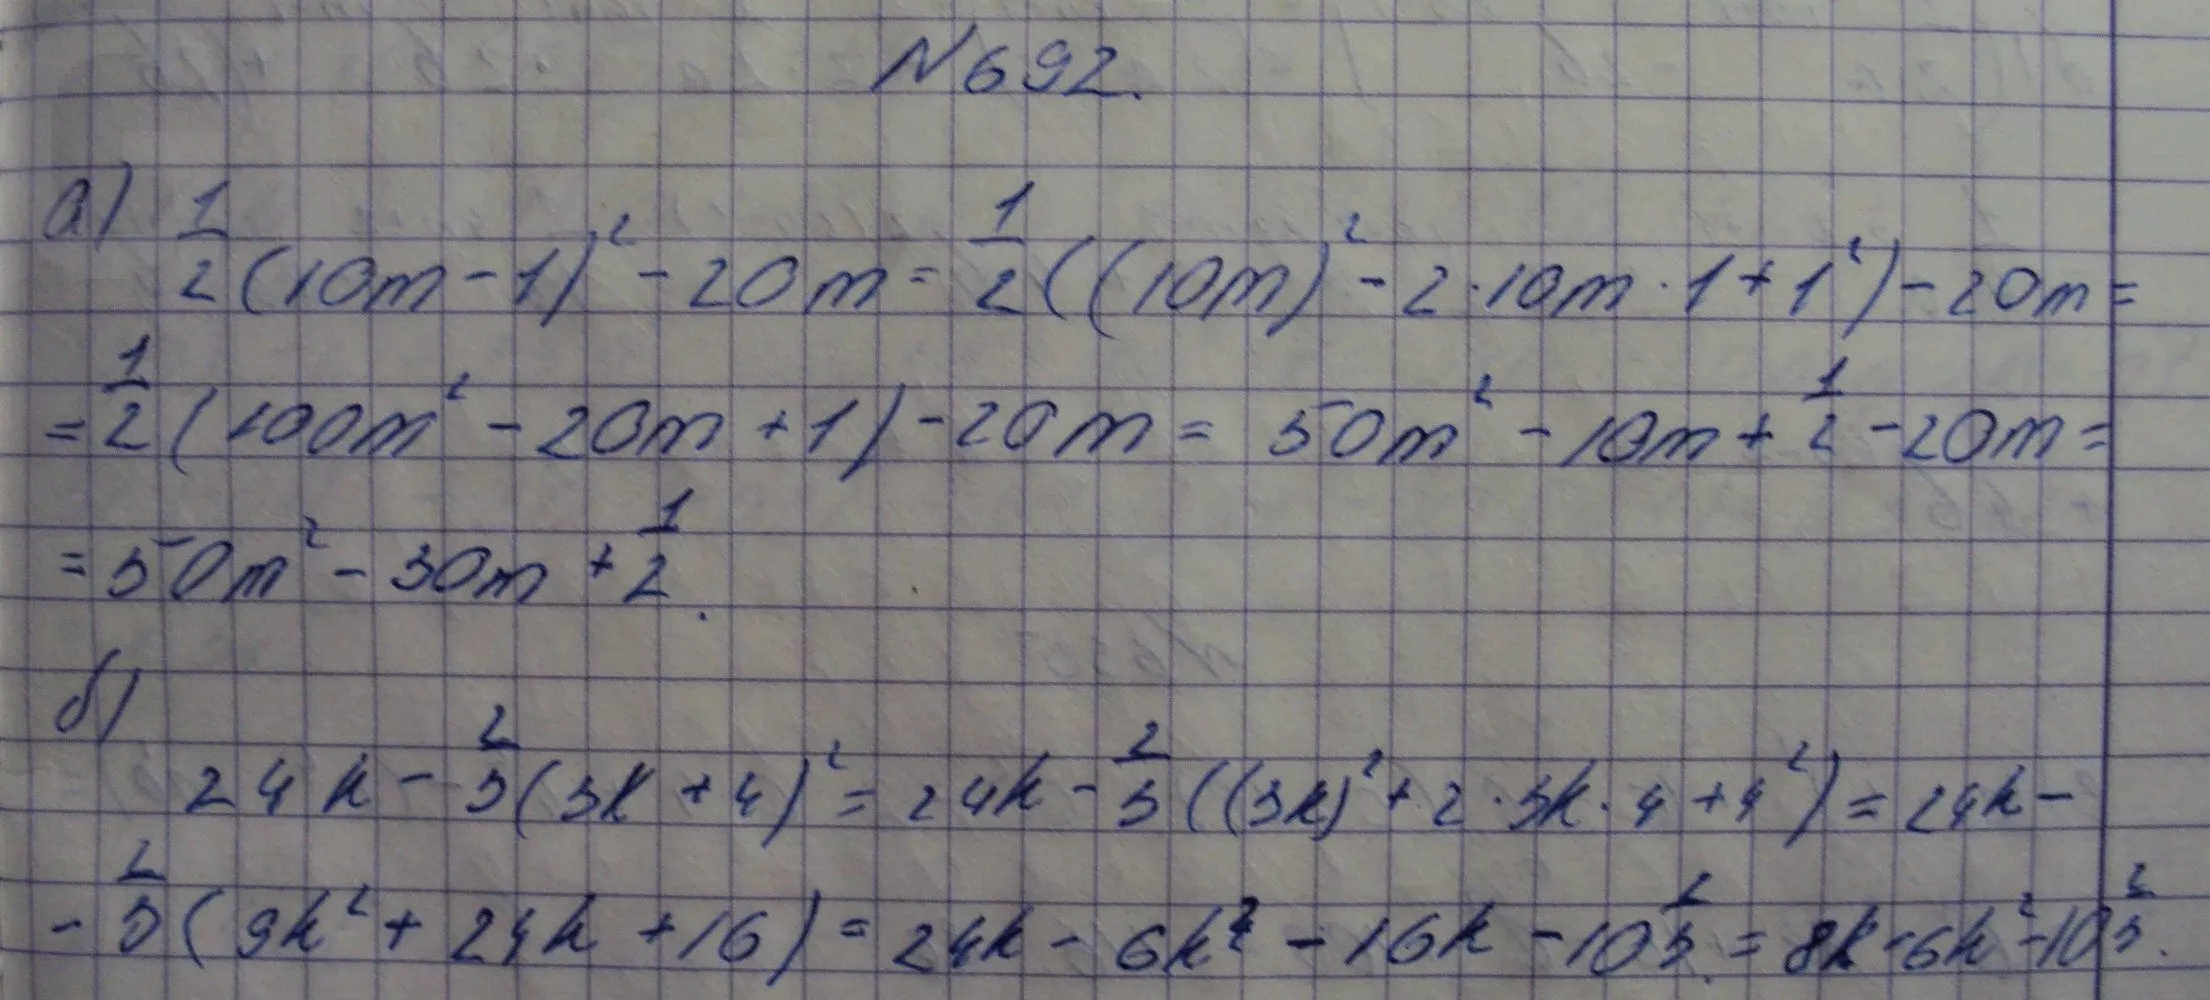 №692.
а) 1/2(10m-1)² - 20m = 1/2((10m)² - 2·10m·1+1²) - 20m =
= 1/2(100m² - 20m + 1) - 20m = 50m² - 10m + 1/2 - 20m =
= 50m² - 30m + 1/2.
б)
24k - 2/3(3k + 4)² = 24k - 2/3((3k)² + 2·3k·4 + 4²) = 24k -
- 2/3(9k² + 24k + 16) = 24k - 6k² - 16k - 10 2/3 = 8k - 6k² - 10 2/3.